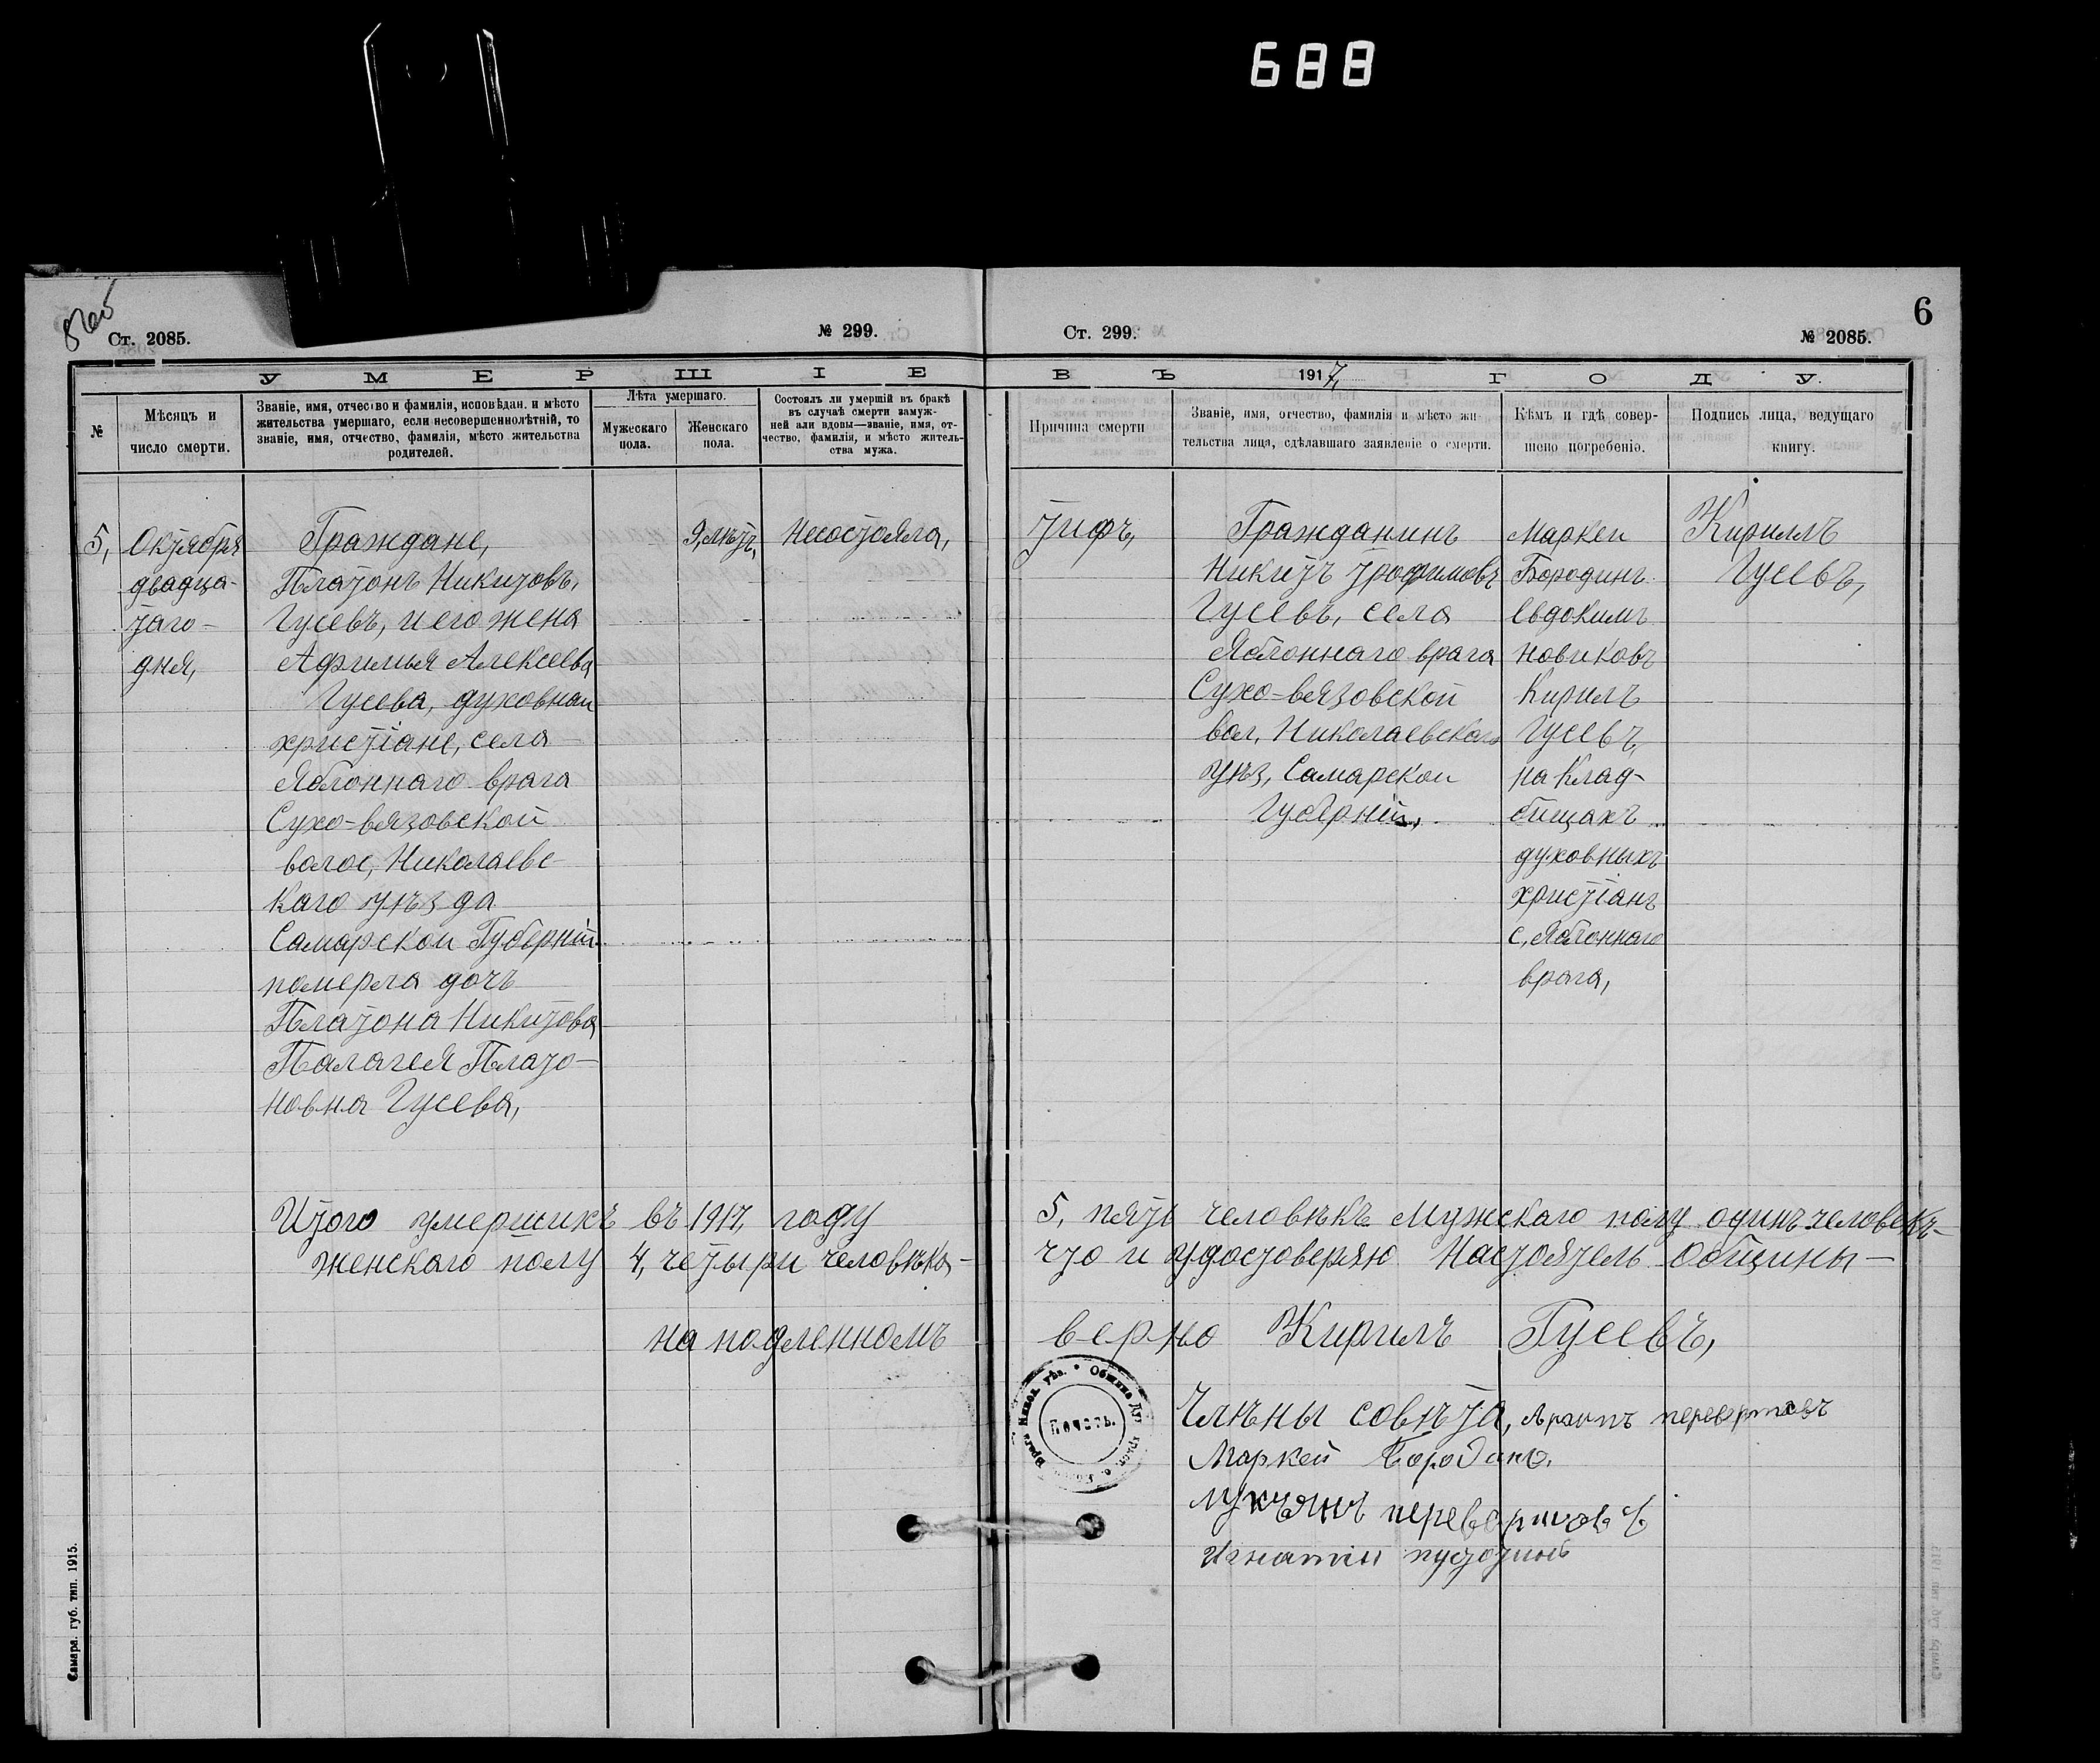 688
6
Ст. 2085.
№ 299.
Ст. 299.
№ 2085.
УМЕРШІЕ
ВЪ 1917, ГОДУ.
№
Мѣсяцъ и число смерти.
Званіе, имя, отчество и фамилія, исповѣдан. и мѣсто
жительства умершаго, если несовершеннолѣтній, то
званіе, имя, отчество, фамилія, мѣсто жительства
родителей.
Лѣта умершаго.
Мужескаго
пола.
Женскаго
пола.
Состоялъ ли умершій въ бракѣ
въ случаѣ смерти замуж-
ней али вдовы—званіе, имя, от-
чество, фамилія, и мѣсто житель-
ства мужа.
Причина смерти
Званіе, имя, отчество, фамилія и мѣсто жи-
тельства лица, сдѣлавшаго заявленіе о смерти.
Кѣмъ и гдѣ совер-
шено погребеніе.
Подпись лица, ведущаго
книгу.
5,
Октября
двадца-
таго-
дня,
Граждане,
Платонъ Никитовъ,
Гусевъ, и его жена
Афимья Алексеева
Гусева, духовнаи
христіане, села
Яблоннаго врага
Сухо-вязовской
волос, Николаевс
каго уѣзда
Самарскои Губерніи
померла дочъ
Платона Никитова
Палагея Плато-
новна Гусева,
9, лѣтъ,
Несостояла,
тифъ,
Гражданинъ
Никитъ трофимовъ
Гусевъ, села
Яблоннаго врага
Сухо-вязовской
вол, Николаевскаго
уѣз, Самарскои
Губерніи,
Маркеи
Бородинъ
Евдокимъ
новиковъ
Кирилъ
Гусевъ,
на клад-
бищахъ
духовныхъ
христіанъ
с, Яблоннаго
врага,
Кириллъ
Гусевъ,
Итого умершихъ въ 1917, году 5, пять человѣкъ Мужскаго полу одинъ человекъ-
женскаго полу 4, четыри человѣка- что и удостоверяю Настоятель Общины-
на подленномъ верно Кирилъ Гусевъ,
Члѣны совѣта, Архипъ перевертовъ
Маркей Бородинъ,
лукъянъ
Игнатіи пустотинъ
Печать.
Самара. губ. тип. 1915.